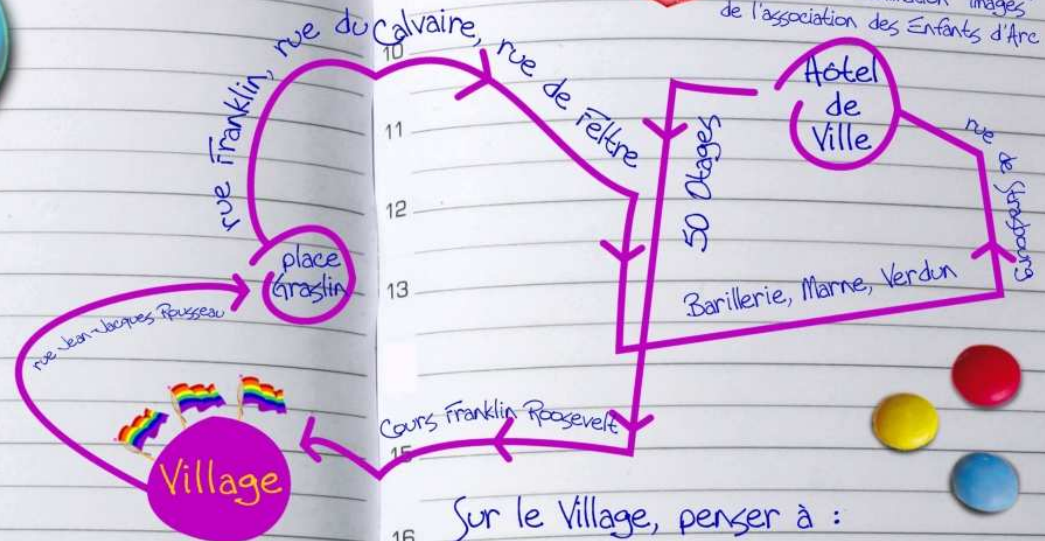 images
de l'association des Enfants d'Arc
rue Franklin, rue du Calvaire, rue de Feltre
10
11
12
13
15
16
Hôtel
de
Ville
50 Otages
rue de Strasbourg
Barillerie, Marne, Verdun
place
Graslin
rue Jean-Jacques Rousseau
Cours Franklin Roosevelt
Village
Sur le Village, penser à :